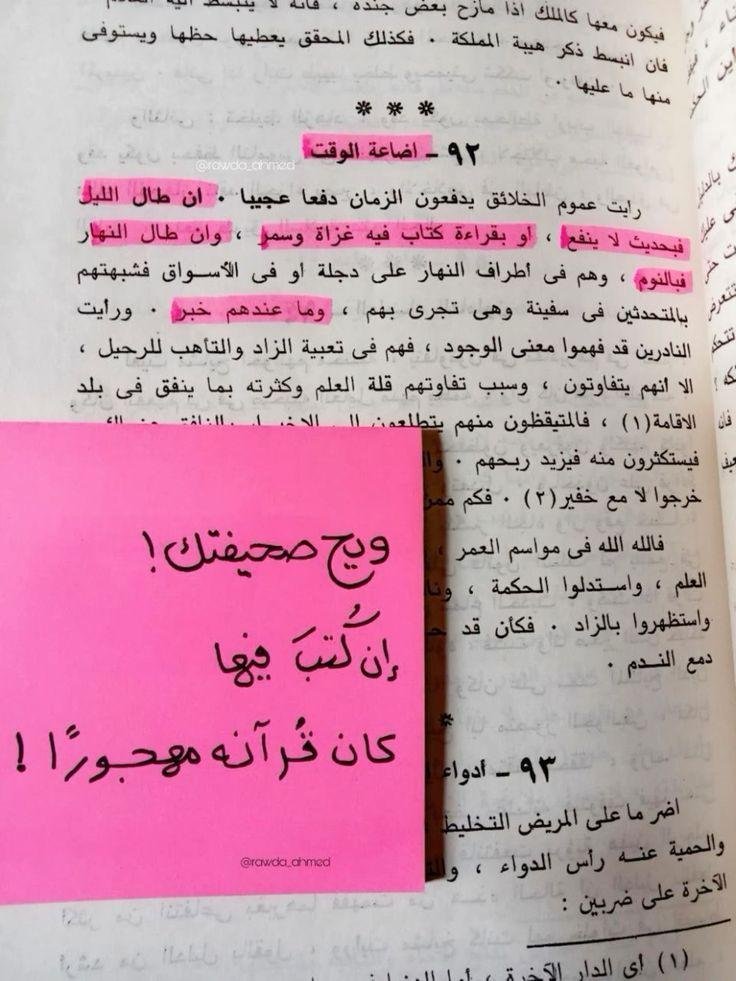 فيكون معها كالملك اذا مازح بعض جنده ، فانه لا ينبسط اليه
فان انبسط ذكر هيبة المملكة . فكذلك المحقق يعطيها حظها ويستوفى
منها ما عليها .
* * *
٩٢ - اضاعة الوقت
@rawda_ahmed
رايت عموم الخلائق يدفعون الزمان دفعا عجيبا . ان طال الليل
فبحديث لا ينفع ، او بقراءة كتاب فيه غزاة وسمر ، وان طال النهار
فبالنوم ، وهم فى أطراف النهار على دجلة او فى الأسواق فشبهتهم
بالمتحدثين فى سفينة وهى تجرى بهم ، وما عندهم خبر . ورأيت
النادرين قد فهموا معنى الوجود ، فهم فى تعبية الزاد والتأهب للرحيل ،
الا انهم يتفاوتون ، وسبب تفاوتهم قلة العلم وكثرته بما ينفق فى بلد
الاقامة(١) ، فالمتيقظون منهم يتطلعون
فيستكثرون منه فيزيد ربحهم .
خرجوا لا مع خفير(٢) . فكم
فالله الله فى مواسم العمر ،
العلم ، واستدلوا الحكمة ،
واستظهروا بالزاد . فكأن قد
دمع الندم .
*
٩٣ - أدواء
اضر ما على المريض التخليط ،
والحمية عنه رأس الدواء ،
الآخرة على ضربين :
(١) أى الدار الآخرة ،
ويح صحيفتك !
إن كُتبَ فيها
كان قُرآنه مهجورًا !
@rawda_ahmed